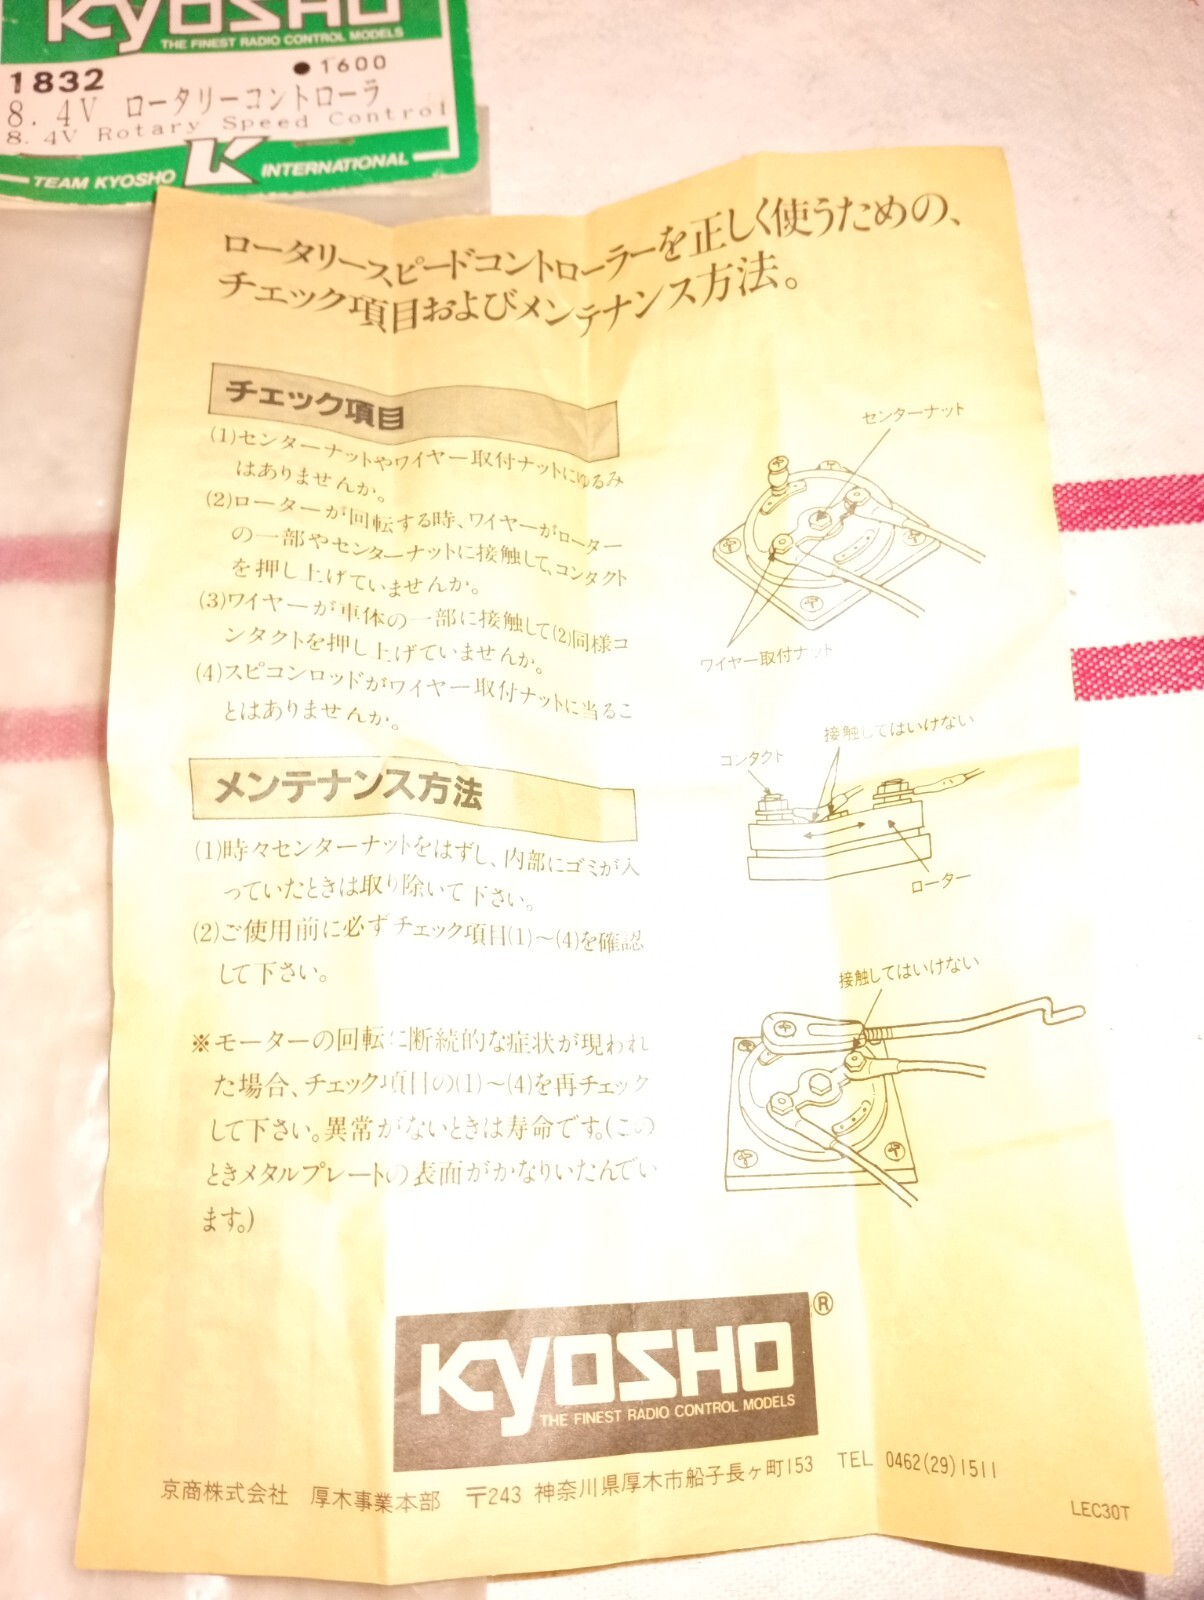 KYOSHO
THE FINEST RADIO CONTROL MODELS
1832 ●1600
8.4V ロータリーコントローラ
8.4V Rotary Speed Control
TEAM KYOSHO K INTERNATIONAL
ロータリースピードコントローラーを正しく使うための、
チェック項目およびメンテナンス方法。
チェック項目
(1)センターナットやワイヤー取付ナットにゆるみ
はありませんか。
(2)ローターが回転する時、ワイヤーがローター
の一部やセンターナットに接触して、コンタクト
を押し上げていませんか。
(3)ワイヤーが車体の一部に接触して(2)同様コ
ンタクトを押し上げていませんか。
(4)スピコンロッドがワイヤー取付ナットに当るこ
とはありませんか。
センターナット
ワイヤー取付ナット
メンテナンス方法
(1)時々センターナットをはずし、内部にゴミが入
っていたときは取り除いて下さい。
(2)ご使用前に必ずチェック項目(1)～(4)を確認
して下さい。
接触してはいけない
コンタクト
ローター
※モーターの回転に断続的な症状が現われ
た場合、チェック項目の(1)～(4)を再チェック
して下さい。異常がないときは寿命です。(この
ときメタルプレートの表面がかなりいたんでい
ます。)
接触してはいけない
KYOSHO®
THE FINEST RADIO CONTROL MODELS
京商株式会社 厚木事業本部 〒243 神奈川県厚木市船子長ヶ町153 TEL 0462(29)1511
LEC30T